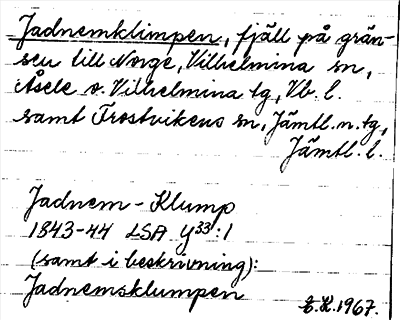 Jadnemklimpen, fjäll på grän-
sen till Norge, Vilhelmina sn,
Åsele o. Vilhelmina tg, Vb. l.
samt Frostvikens sn, Jämtl. n. tg,
Jämtl. l.
Jadnem-Klump
1843-44 LSA Y³³:1
(samt i beskrivning):
Jadnemsklumpen
E.K. 1967.